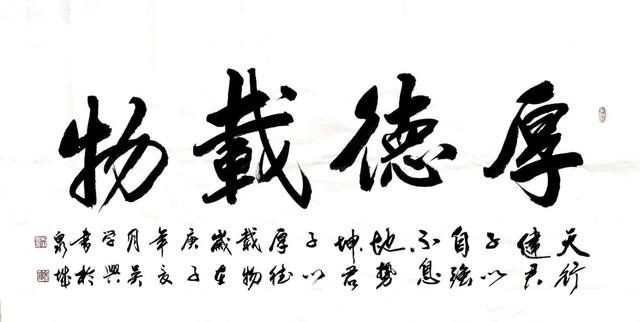 厚德載物
天行
健君
子以
自強
不息
地勢
坤君
子以
厚德
載物
歲在
庚子
年夏
月吴
学興
書於
泉城